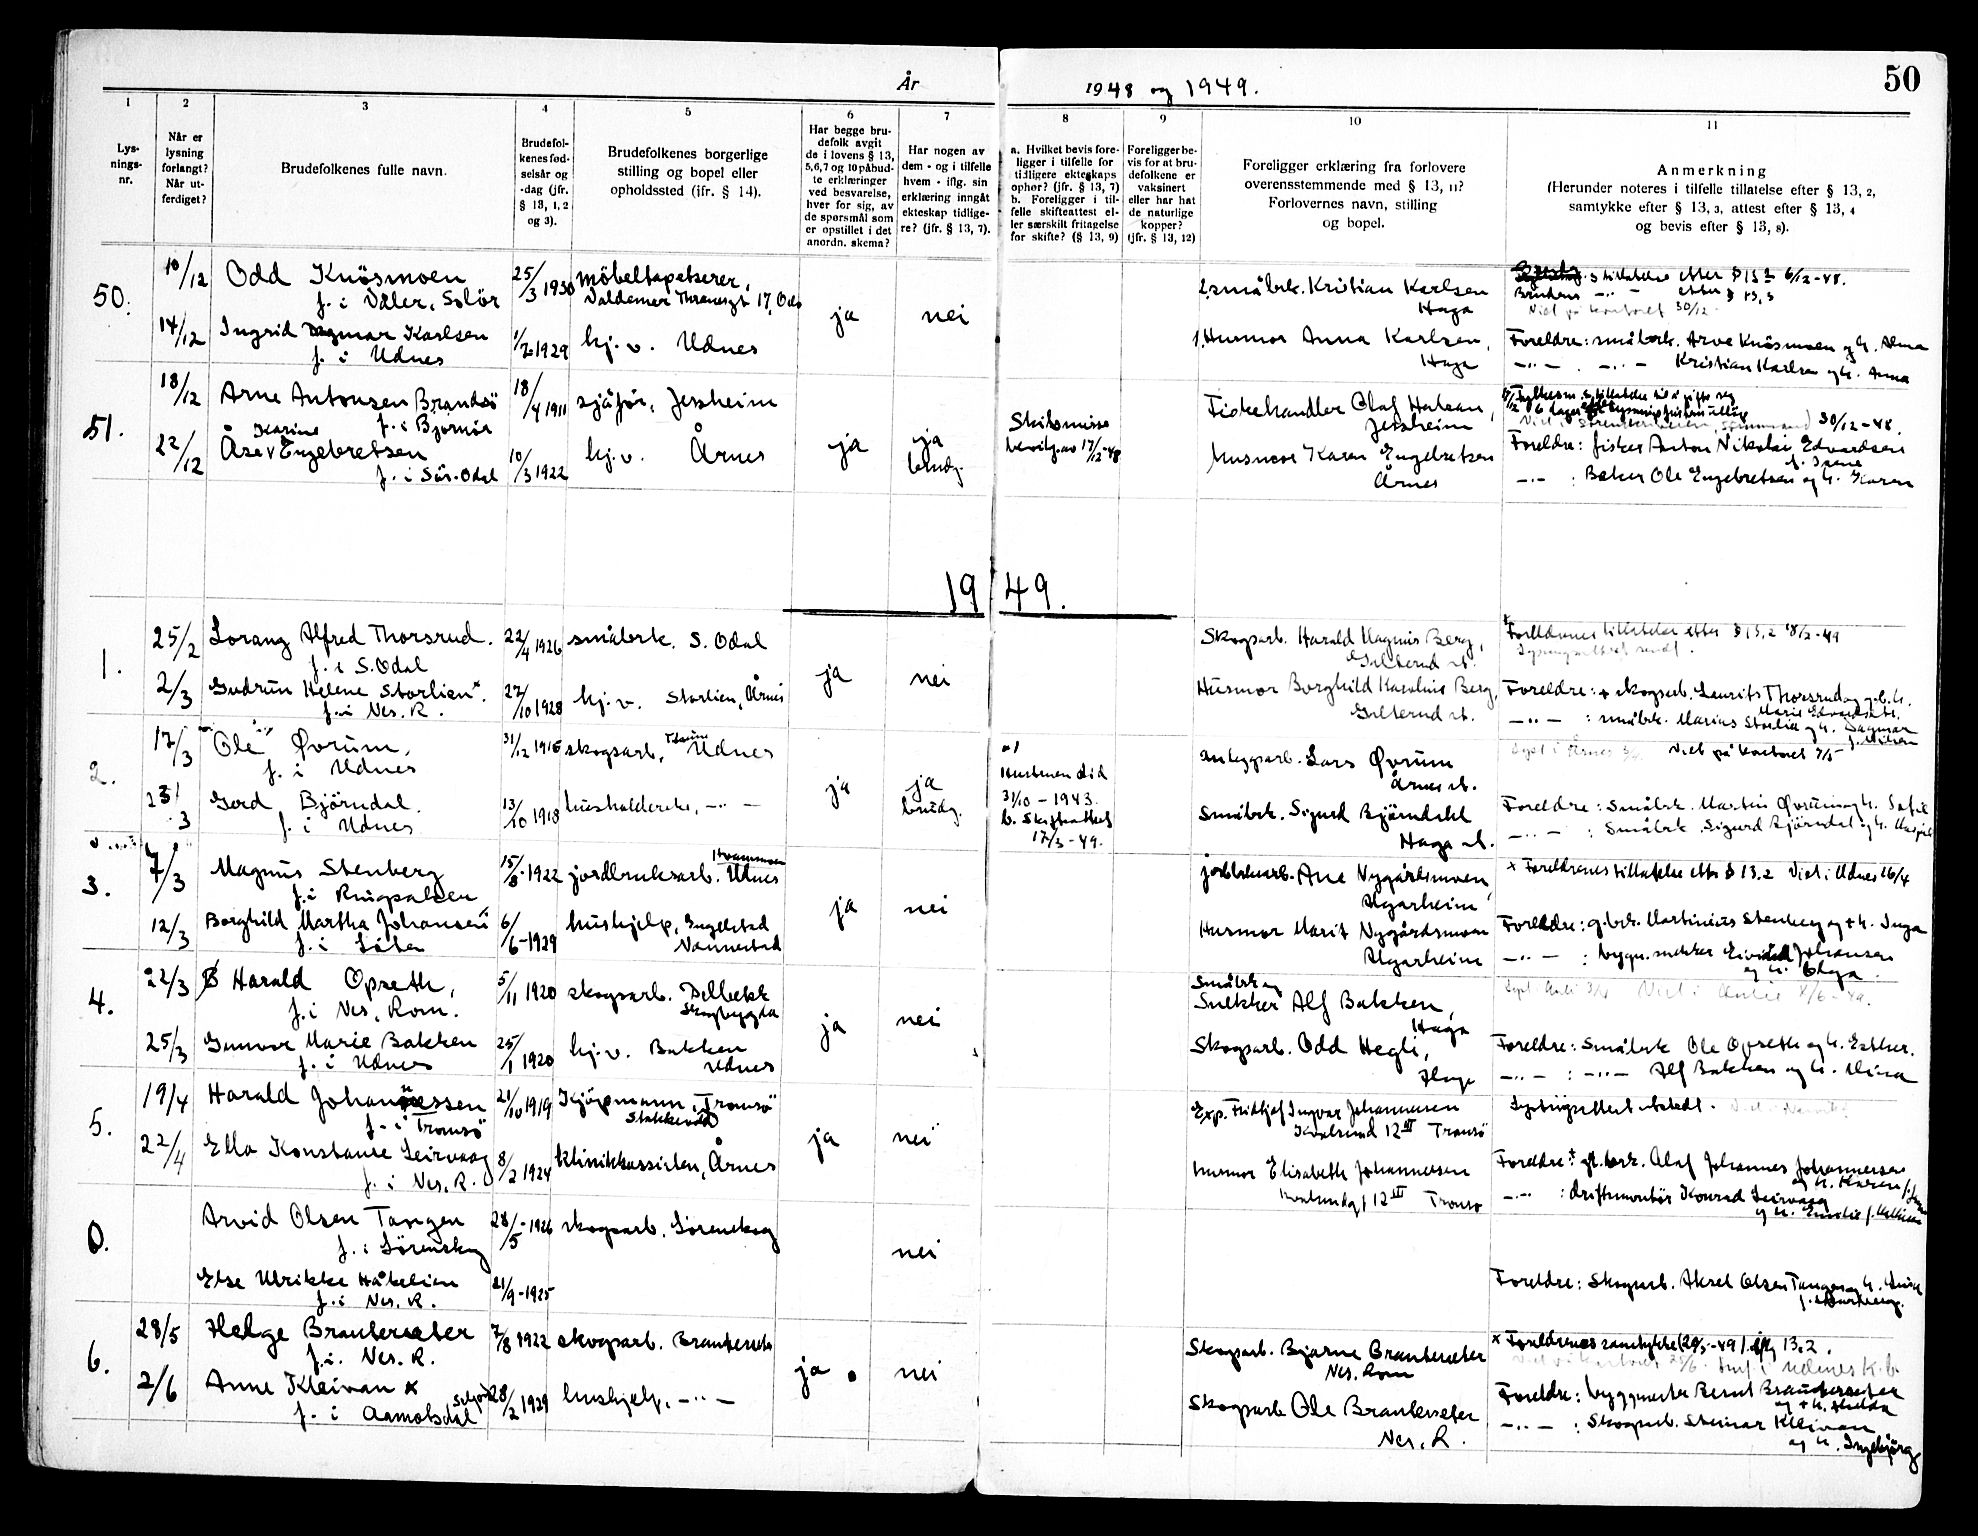 År
1948 og 1949.
50
1
2
3
4
5
6
7
8
9
10
11
Lys-
nings-
nr.
Når er
lysning
forlangt?
Når ut-
ferdiget?
Brudefolkenes fulle navn.
Brudefol-
kenes fød-
selsår og
-dag (jfr.
§ 13, 1, 2
og 3).
Brudefolkenes borgerlige
stilling og bopel eller
opholdssted (ifr. § 14).
Har begge bru-
defolk avgit
de i lovens § 13,
5,6,7 og 10 påbud-
te erklæringer
ved besvarelse,
hver for sig, av
de spørsmål som
er opstillet i det
anordn. skema?
Har nogen av
dem - og i tilfelle
hvem - iflg. sin
erklæring inngåt
ekteskap tidlige-
re? (jfr. § 13, 7).
a. Hvilket bevis fore-
ligger i tilfelle for
tidligere ekteskaps
ophør? (jfr. § 13, 7)
b. Foreligger i til-
felle skifteattest el-
ler særskilt fritagelse
for skifte? (§ 13, 9)
Foreligger be-
vis for at bru-
defolkene er
vaksinert
eller har hat
de naturlige
kopper?
(jfr. § 13, 12)
Foreligger erklæring fra forlovere
overensstemmende med § 13, 11?
Forlovernes navn, stilling
og bopel.
Anmerkning
(Herunder noteres i tilfelle tillatelse efter § 13, 2,
samtykke efter § 13, 3, attest efter § 13, 4
og bevis efter § 13, 8).
50.
10/12
Odd Knösmoen
f. i Våler, Solör
25/3 1930
möbeltapetserer,
Valdemar Thranesgt 17, Oslo
ja
nei
2. småbrk. Kristian Karlsen
Haga
tillatelse etter § 13 2 6/12-48.
Brudens -"- etter § 13,3
Viet på kontoret 30/12.
14/12
Ingrid Dagmar Karlsen
f. i Udnes
1929
hj. v. Udnes
1. Husmor Anna Karlsen,
Haga
Foreldre: småbrk. Arve Knösmoen og h. Alma
-"- . -"- Kristian Karlsen og h. Anna
51.
18/12
Arne Antonsen Brandsö
f. i Bjarnör
18/4 1911
sjåför, Jessheim
ja
ja
brudg.
Skilsmisse
bevilg. av 17/12-48
Fiskehandler Olaf
Jessheim
30/12-48.
22/12
Karine
Åse v Engebretsen
f. i Sör-Odal
10/3 1922
hj. v. Årnes
husmor Karen Engebretsen
Årnes
Foreldre: fisker Anton Nikolai Edvardsen
-"- : Baker Ole Engebretsen og h. Karen
1949.
1.
25/2
Lorang Alfred Thorsrud.
f. i S. Odal
22/4 1926
småbrk. S. Odal
ja
nei
Skogsarb. Harald Magnus Berg,
Foreldrenes tillatelse etter § 13.2 18/2-49
2/3
Gudrun Helene Storlien x
f. i Nes. R.
27/10 1928
hj. v. Storlien, Årnes
Husmor Borghild Karoline Berg,
Foreldre: + skogsarb. Laurits Thorsrud og h.
-"- : småbrk. Marius Storlien og h. Dagmar
2.
17/3
Ole Øvrum,
f. i Udnes
31/12 1915
skogsarb. Udnes
ja
ja
brudg.
a)
Hustruen död
31/10 - 1943.
b. Skifteattest
17/3 - 49.
anleggsarb. Lars Øvrum
Årnes st.
Viet på kontoret 7/5
23/3
Gerd Björndal.
f. i Udnes
13/10 1918
husholderske, -"-
Småbrk. Sigurd Björndal
Haga st.
Foreldre: Småbrk. Martin Øvrum og h. Sofie
-"- : Småbrk Sigurd Björndal og h.
3.
7/3
Magnus Stenberg
f. i
15/8-1922
jordbruksarb. Udnes
ja
nei
Arne Nygårdsmoen
Algarheim
x Foreldrenes tillatelse etter § 13.2 Viet i Udnes 16/4
12/3
Borghild Martha Johansen
f. i
6/6-1929
hushjelp,
Nannestad
Husmor Marit Nygårdsmoen
Algarheim
Foreldre: g.brk. Martinius Stenberg og + h. Inga
-"- : Johansen
og h. Olga.
4.
22/3
Harald Opseth,
f. i Nes, Rom.
5/11 1920
skogsarb. Delbekk
Skogbygda
ja
nei
Småbrk og
Snekker Alf Bakken,
Haga
25/3
Gunvor Marie Bakken
f. i Udnes
25/1 1920
hj. v. Bakken
Udnes
Skogsarb. Odd Hegli,
Haga
Foreldre: Småbrk Ole Opseth og h. Esther.
-"- : -"- Alf Bakken og h. Mina
5.
19/4
Harald Johannessen
f. i Tromsö
21/10 1919
Kjöpmann, Tromsö
Stakkevold
ja
nei
Exp. Fridtjof Ingvar Johannesen
Tromsö
Lysningsattest utstedt.
22/4
Ella Konstanse Leirvaag
f. i Nes. R.
8/2 1924
Årnes
husmor Elisabeth Johannesen
Tromsö
Johannes Johannesen
-"- : driftsmontör Konrad Leirvaag
0.
Arvid Olsen Tangen
f. i Lörenskog
28/5-1926
skogsarb. Lörenskog
nei
Else Ulrikke Håkelien
f. i Nes. R.
21/9-1925
Foreldre: Skogsarb. Aksel Olsen Tangen og h.
6.
28/5
Helge Branterseter
f. i. Nes. R.
7/8 1922
skogsarb. Branterseter
ja
nei
Skogsarb. Bjarne Branterseter
Nes, Rom
x Foreldrenes samtykke 13.2.
2/6
Anne Kleivan x
f. i Aamotsdal
28/2 1929
hushjelp. -"-
Skogsarb Ole Branterseter
Nes, R.
Foreldre: byggmester Bernt Branterseter
-"- : Skogsarb. Steinar Kleivan
og h. Ingebjörg